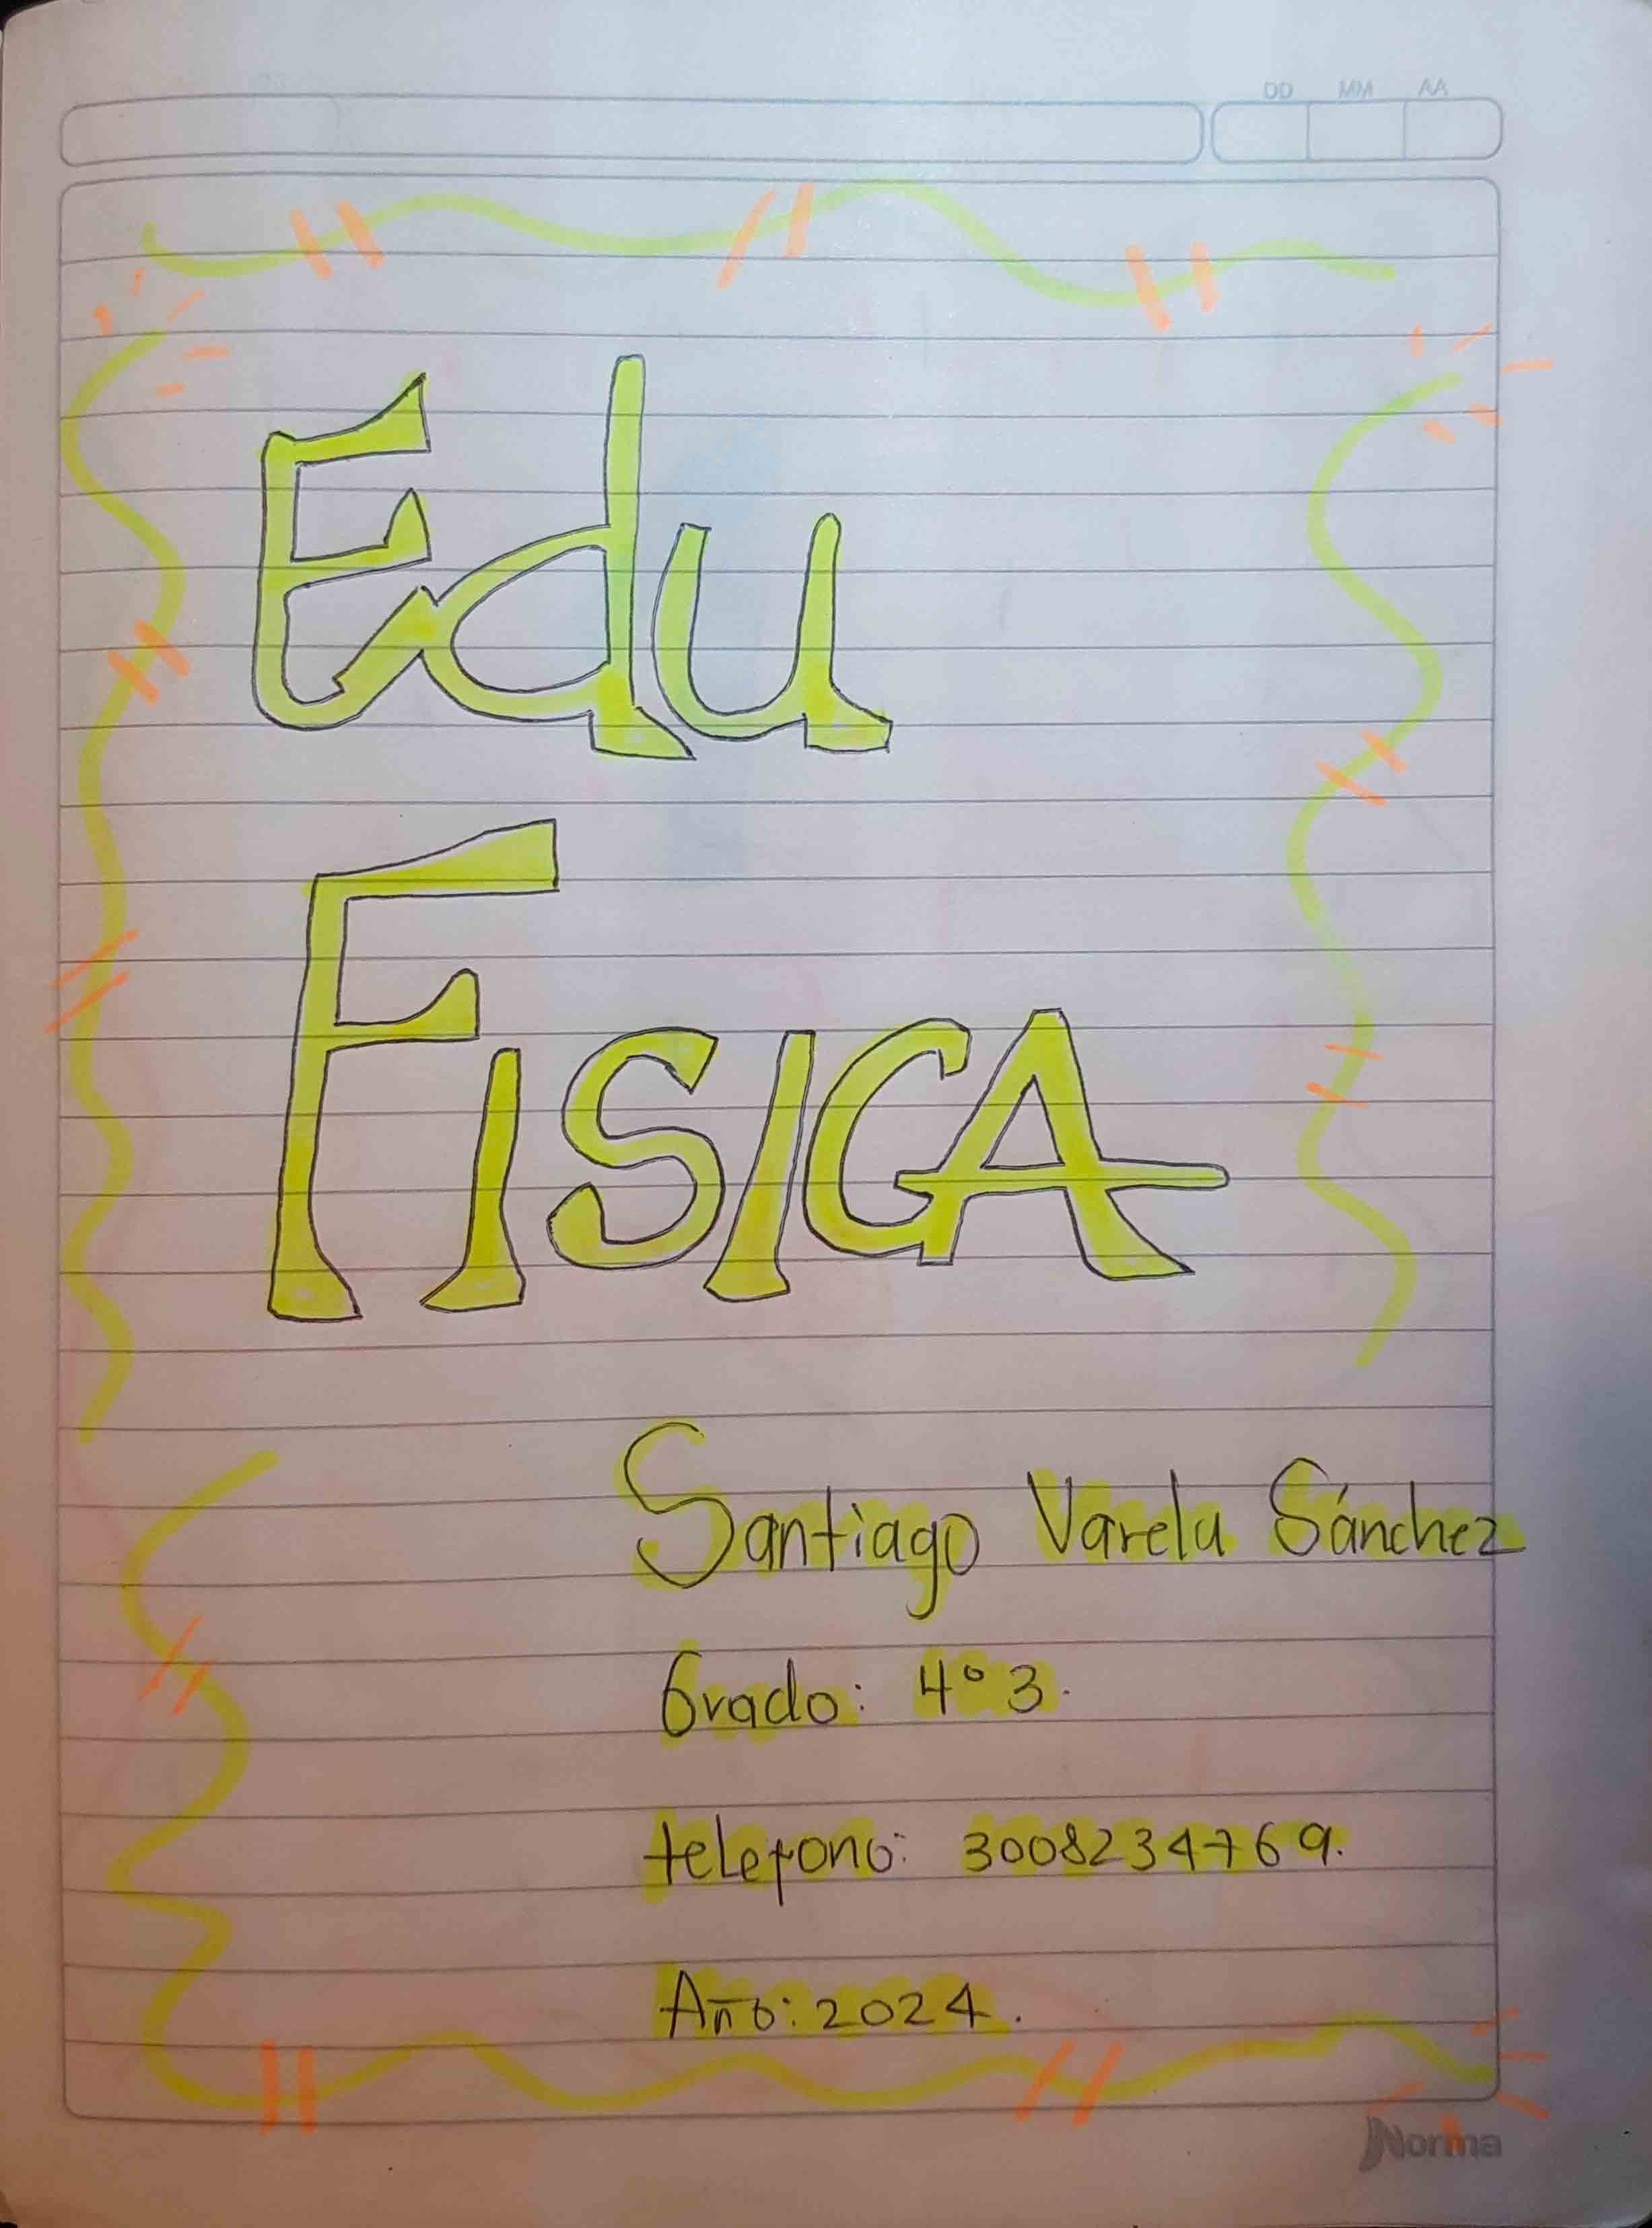 DD MM AA
Edu
FISICA
Santiago Varela Sánchez
Grado: 4° 3.
telefono: 3008234769.
Año: 2024.
Norma